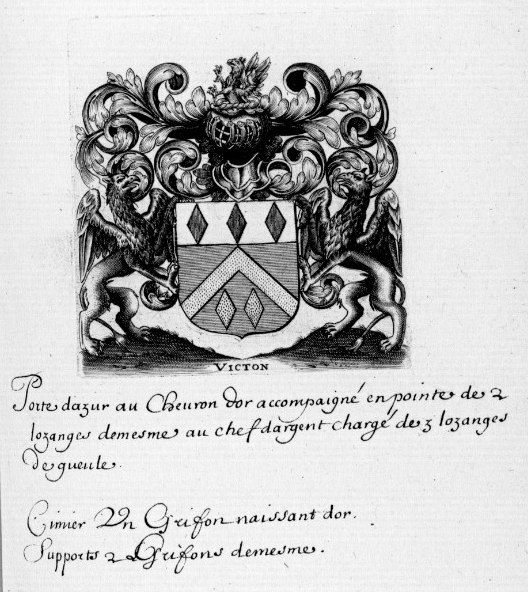 VICTON
Porte dazur au Cheuron dor accompaigné en pointe de 2
lozanges demesme au chef dargent chargé de 3 lozanges
de gueule.
Cimier Un Grifon naissant dor.
Supports 2 Grifons demesme.